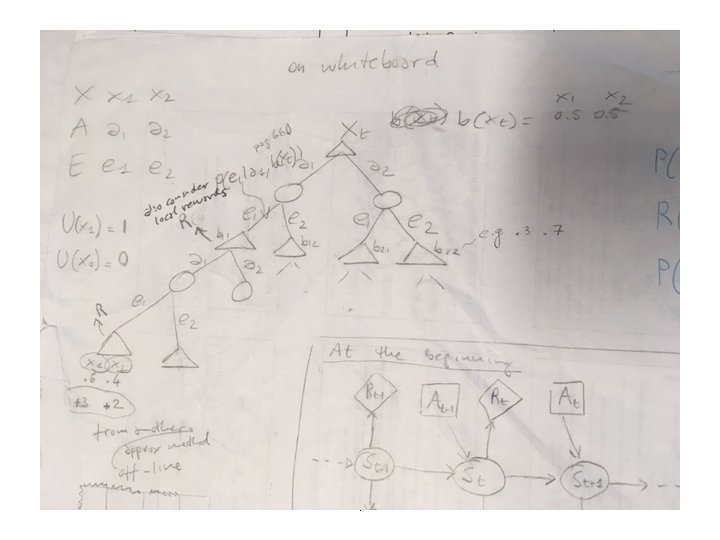 on whiteboard
X x1 x2
A a1 a2
E e1 e2
U(x1) = 1
U(x0) = 0
b(xt) =
x1 x2
0.5 0.5
Xt
a1
a2
pag 660
P(e1|a1, b(xt))
also consider
local rewards
R
e1
e2
e1
e2
b1
b12
b21
b22
e.g. .3 .7
a1
a2
e1
e2
R
.6 .4
+3 +2
from another
approx method
off-line
P(
R(
P(
At the beginning
At-1
Rt
At
St-1
St
St+1